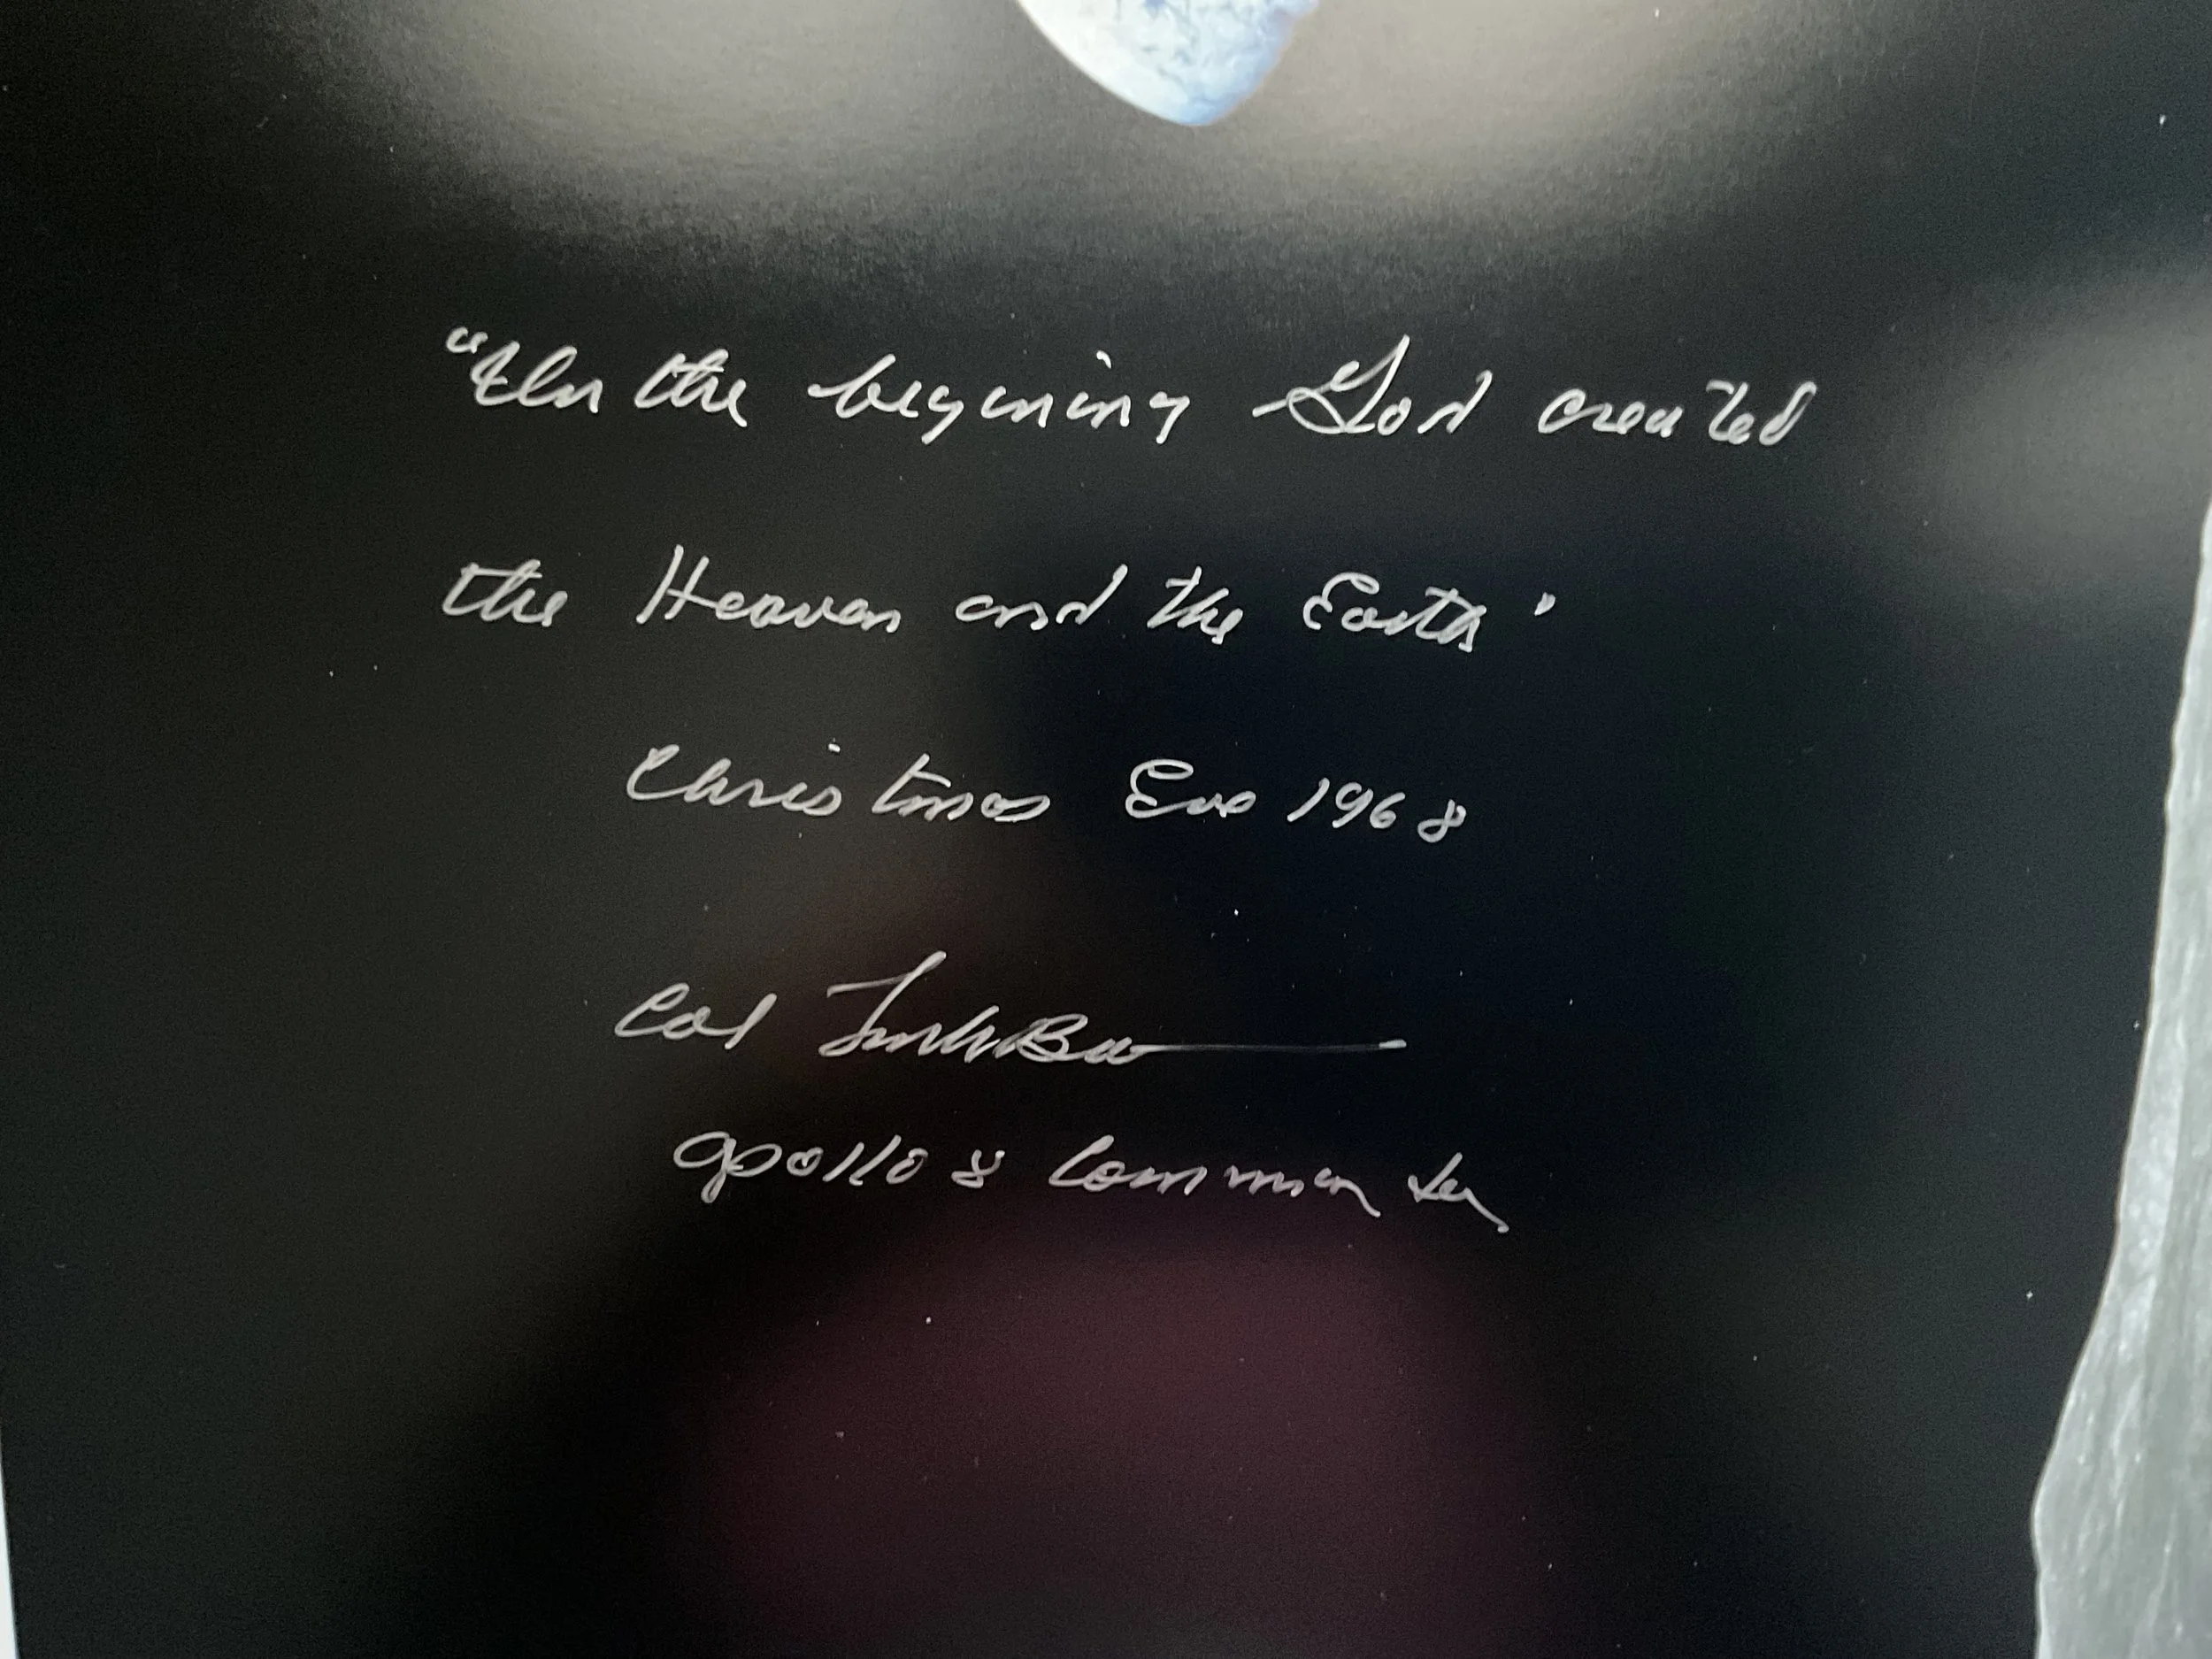 "In the begining God created
the Heaven and the Earth"
Christmas Eve 1968
Col Frank Borman
Apollo 8 Commander